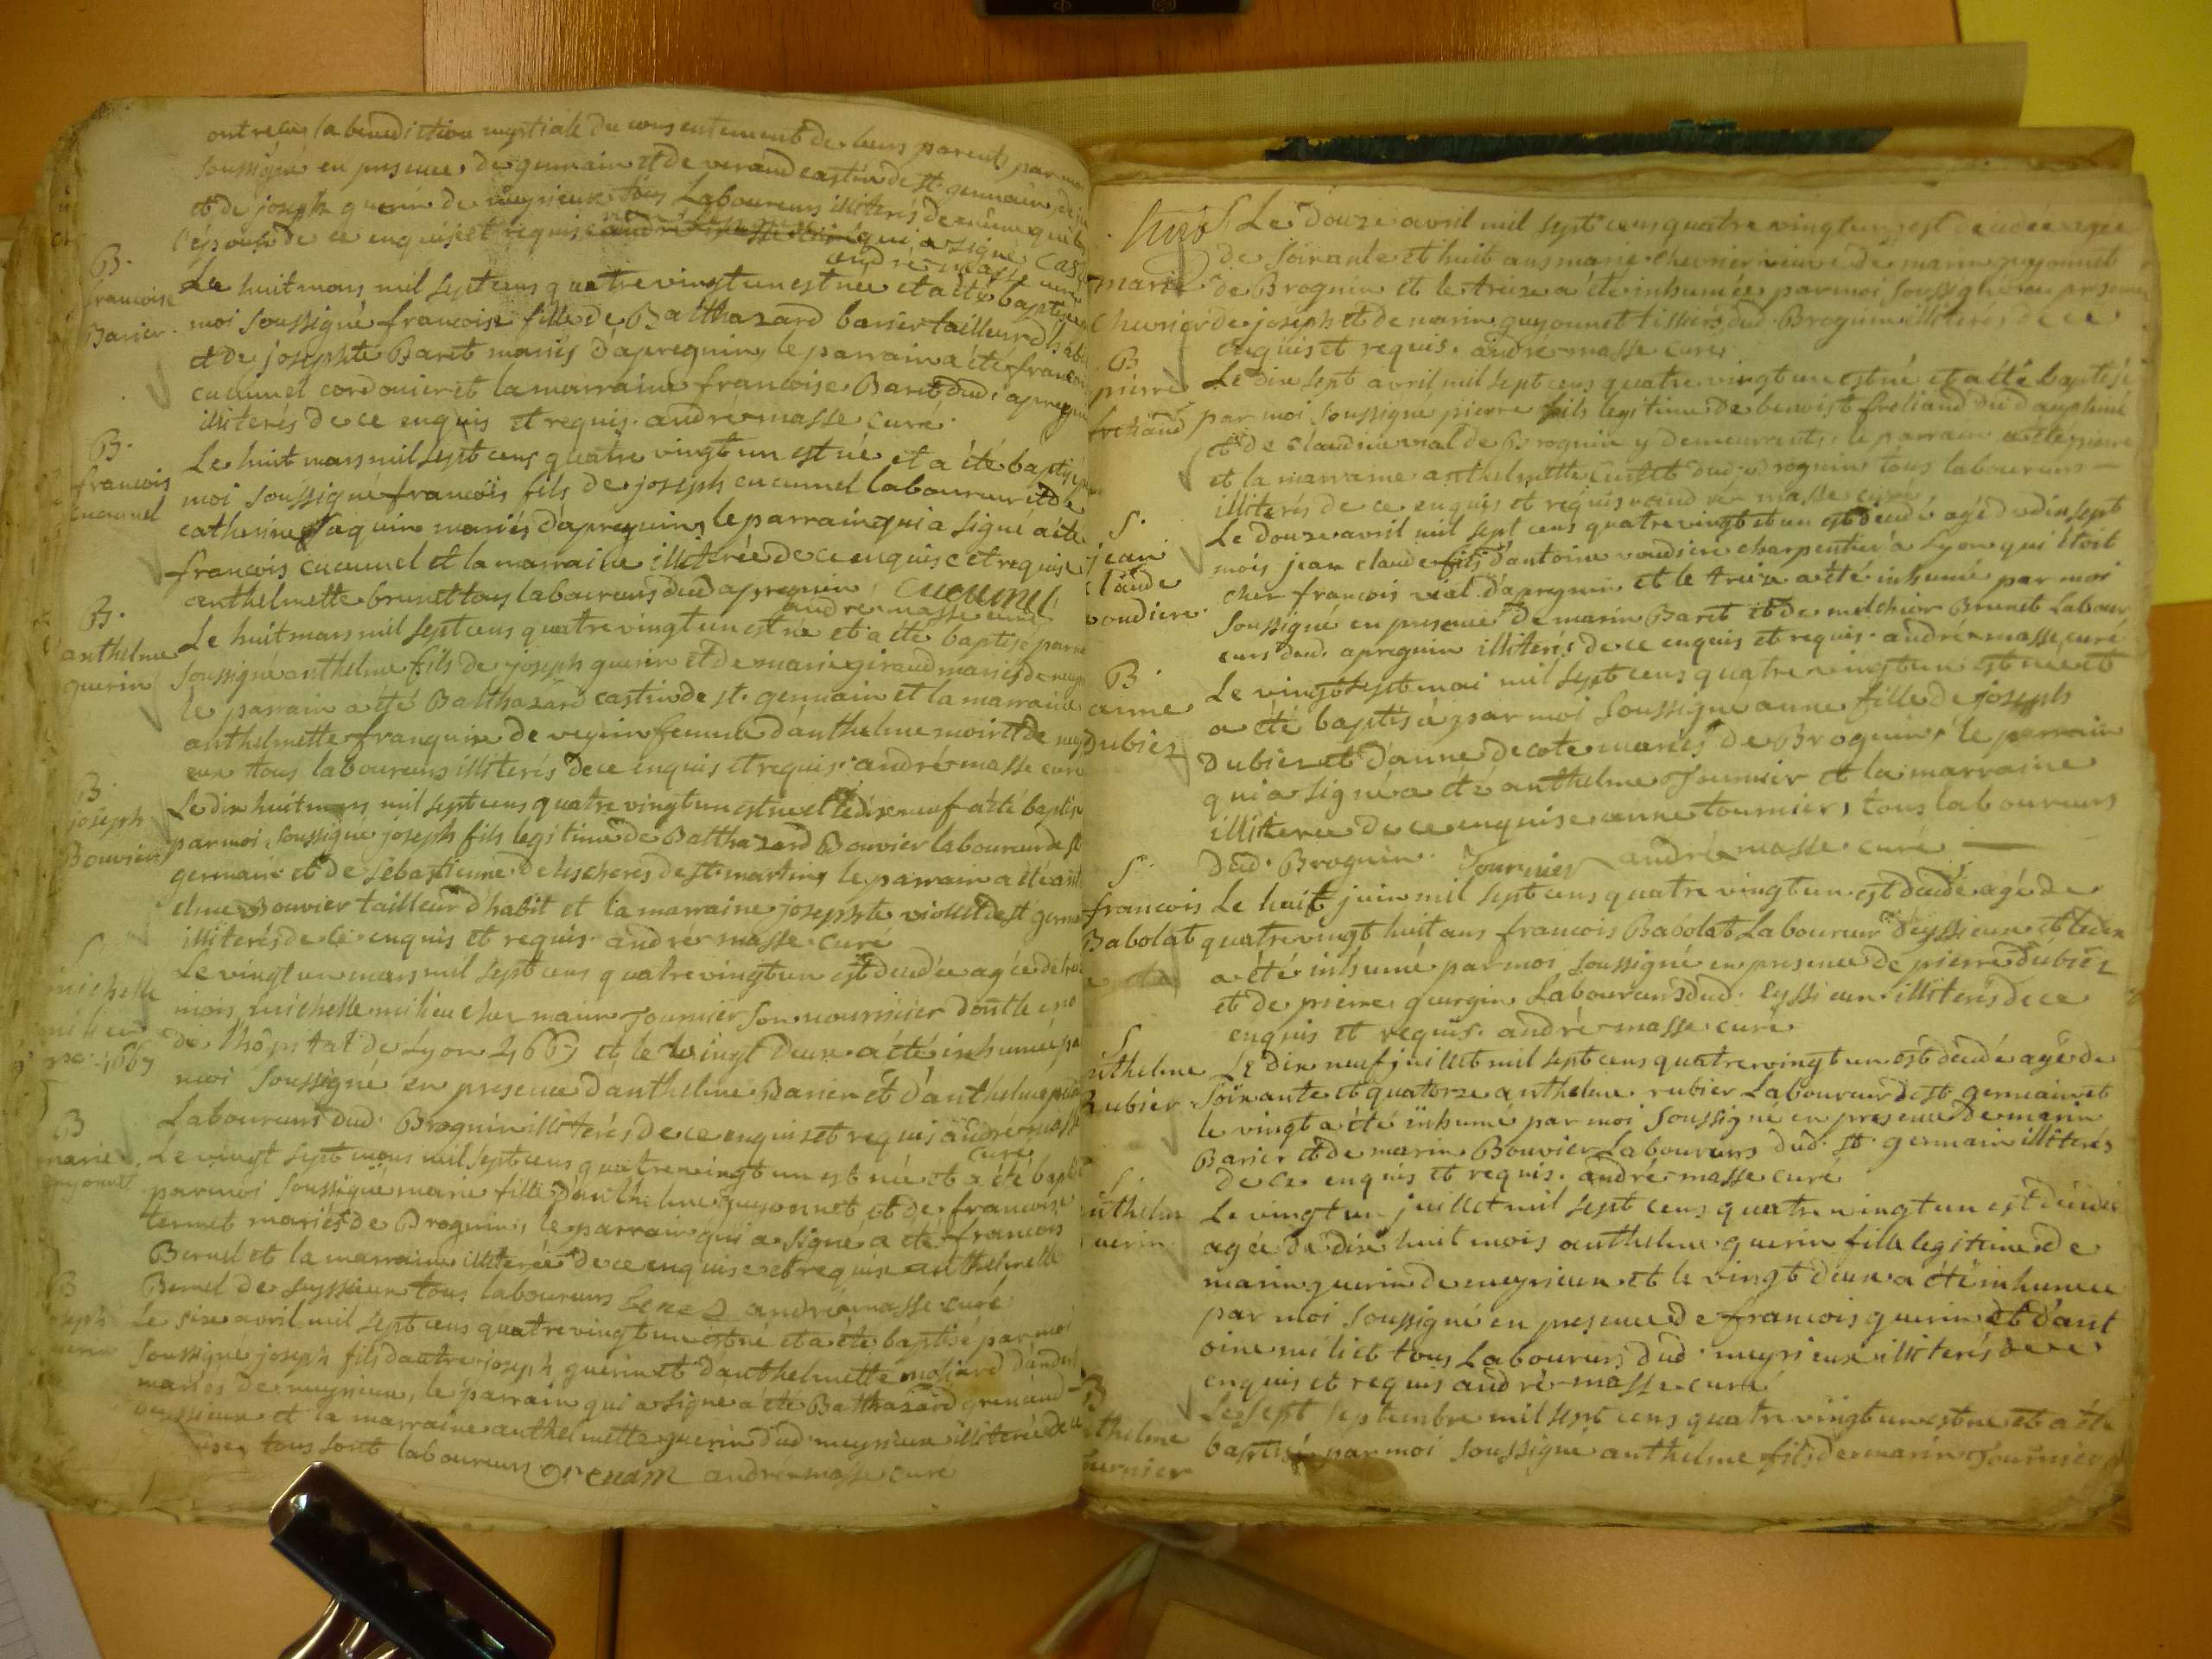 ont reçus la benediction nuptiale du consentement de leurs parents par moi
soussigné en presence de germain et de verand castin de st. germain
et de joseph guerin de meyrieux tous Laboureurs illiterés de même que
l'épouse de ce enquise et requise qui a signé
andré masse curé
B.
francoise
Barier
Le huit mars mil sept cens quatre vingt un est née et a été baptisée par
moi soussigné francoise fille de Balthazard barier tailleur d'habit
et de josephte Baret mariés d'apregnin, le parrain a été francois
cucunel cordonier et la marraine francoise Baret dud. apregnin
illiterés de ce enquis et requis. andré masse curé
B.
francois
cucunel
Le huit mars mil sept cens quatre vingt un est né et a été baptisé par
moi soussigné francois fils de joseph cucunel laboureur et de
catherine Jaquin mariés d'apregnin, le parrain qui a signé a été
francois cucunel et la marraine illiterée de ce enquise et requise
anthelmette brunet tous laboureurs dud apregnin CUCUNEL
andré masse curé
B.
anthelme
guerin
Le huit mars mil sept cens quatre vingt un est né et a été baptisé par moi
soussigné anthelme fils de joseph guerin et de marie giraud mariés de
le parrain a été Balthazard castin de st. germain et la marraine
anthelmette franquin de femme d'anthelme moiret de
eux tous laboureurs illiterés de ce enquis et requis. andré masse curé
B.
joseph
Bouvier
Le dix huit mars mil sept cens quatre vingt un est né et le dixneuf a été baptisé
par moi soussigné joseph fils legitime de Balthazard Bouvier laboureur de st
germain et de sebastienne de st. martin, le parrain a été anth
elme Bouvier tailleur d'habit et la marraine josephte violet de st germain
illiterés de ce enquis et requis. andré masse curé
S
michelle
milieu
Le vingt un mars mil sept cens quatre vingt un est decedée agée de
mois michelle milieu chez marin fournier son nourricier dont le
de l'hôpital de Lyon et le vingt deux a été inhumée par
moi soussigné en presence d'anthelme Barier et d'anthelme
Laboureurs dud. Brognin illiterés de ce enquis et requis andré masse
curé
B
marie
guyonnet
Le vingt sept mars mil sept cens quatre vingt un est née et a été baptisée
par moi soussigné marie fille d'anthelme guyonnet et de francoise
ternet mariés de Brognin, le parrain qui a signé a été francois
Bernel et la marraine illiterée de ce enquise et requise anthelmette
Bernel de tous laboureurs andré masse curé
B
joseph
guerin
Le six avril mil sept cens quatre vingt un est né et a été baptisé par moi
soussigné joseph fils d'autre joseph guerin et d'anthelmette
mariés de meyrieux, le parrain qui a signé a été Balthazard grenand
et la marraine anthelmette guerin dud. meyrieux illiterée de ce
tous sont laboureurs andré masse curé
S
marie
chevrier
Le Douze avril mil sept cens quatre vingt un est decedée agée
de soixante et huit ans marie chevrier veuve de marin guyonnet
de Brognin et le treize a été inhumée par moi soussigné en presence
de joseph et de marin guyonnet dud. Brognin illiterés de ce
enquis et requis. andré masse curé
B
pierre
Le dix sept avril mil sept cens quatre vingt un est né et a été baptisé
par moi soussigné pierre fils legitime de benoist
et de claudine vial de Brognin y demeurants, le parrain a été pierre
et la marraine anthelmette dud. Brognin tous laboureurs
illiterés de ce enquis et requis andré masse curé
S.
jean
claude
voudiere
Le douze avril mil sept cens quatre vingt et un est decedé agé de dix sept
mois jean claude fils d'antoine voudiere charpentier a Lyon qui étoit
chez francois vial d'apregnin, et le treize a été inhumé par moi
soussigné en presence de marin Baret et de melchior Brunet Labour
eurs dud. apregnin illiterés de ce enquis et requis. andré masse curé
B
anne
Dubiez
Le vingt sept mai mil sept cens quatre vingt un est née et
a été baptisée par moi soussigné anne fille de joseph
Dubiez et d'anne decote mariés de Brognin, le parrain
qui a signé a été anthelme fournier et la marraine
illiterée de ce enquise anne fournier, tous laboureurs
dud. Brognin. fournier andré masse curé
S
francois
Babolat
Le huit juin mil sept cens quatre vingt un est decedé agé de
quatre vingt huit ans francois Babolat Laboureur d'eyssieux et le dix
a été inhumé par moi soussigné en presence de pierre Dubiez
et de pierre gurgin Laboureurs dud. Eyssieux illiterés de ce
enquis et requis. andré masse curé
S
anthelme
Rubier
Le dix neuf juillet mil sept cens quatre vingt un est decedé agé de
soixante et quatorze anthelme rubier Laboureur de st. germain et
le vingt a été inhumé par moi soussigné en presence de marin
Barier et de marin Bouvier Laboureurs dud. st. germain illiterés
de ce enquis et requis. andré masse curé
S
anthelme
guerin
Le vingt un juillet mil sept cens quatre vingt un est decedée
agée de dix huit mois anthelme guerin fille legitime de
marin guerin de meyrieux et le vingt deux a été inhumée
par moi soussigné en presence de francois guerin et d'ant
oine miliet tous Laboureurs dud. meyrieux illiterés de ce
enquis et requis andré masse curé
B
anthelme
fournier
Le sept septembre mil sept cens quatre vingt un est né et a été
baptisé par moi soussigné anthelme fils de marin fournier